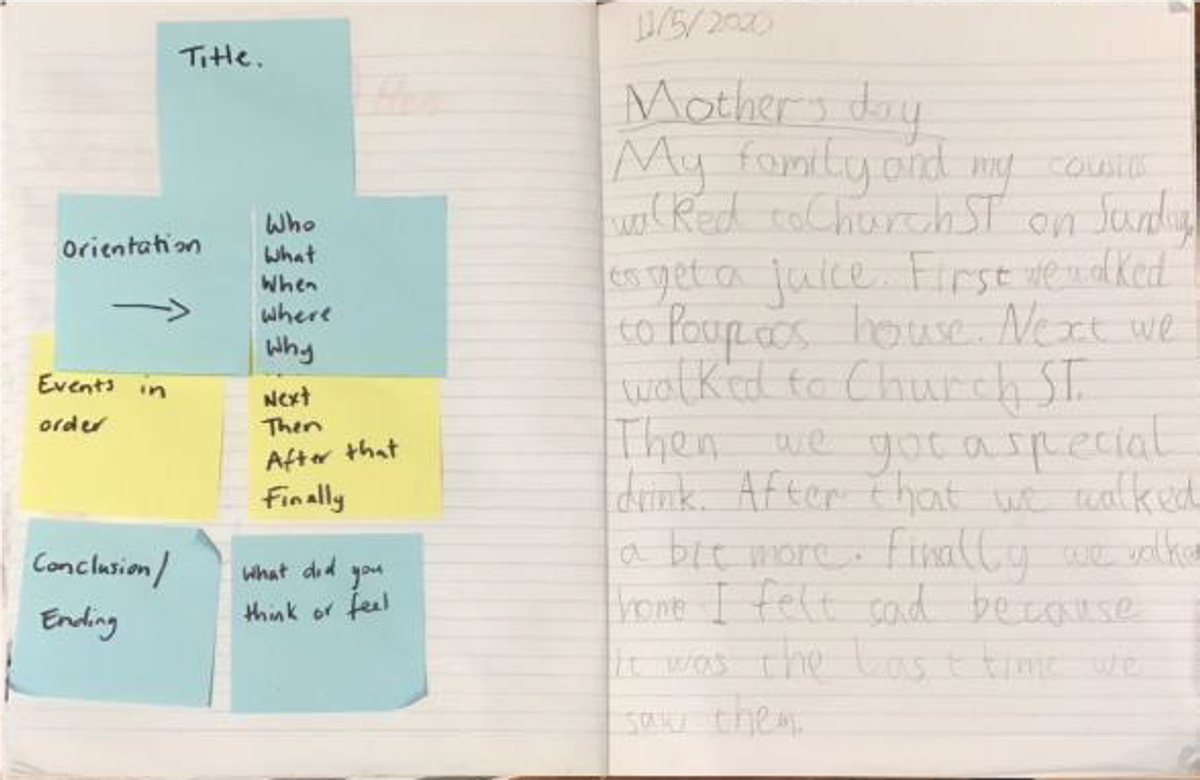 Title.
Orientation
Who
What
When
Where
Why
Events in
order
Next
Then
After that
Finally
Conclusion/
Ending
What did you
think or feel
11/5/2020
Mother's day
My family and my cousins
walked to Church ST on Sunday
to get a juice. First we walked
to Poupaos house. Next we
walked to Church ST.
Then we got a special
drink. After that we walked
a bit more. Finally we walked
home I felt sad because
it was the last time we
saw them.